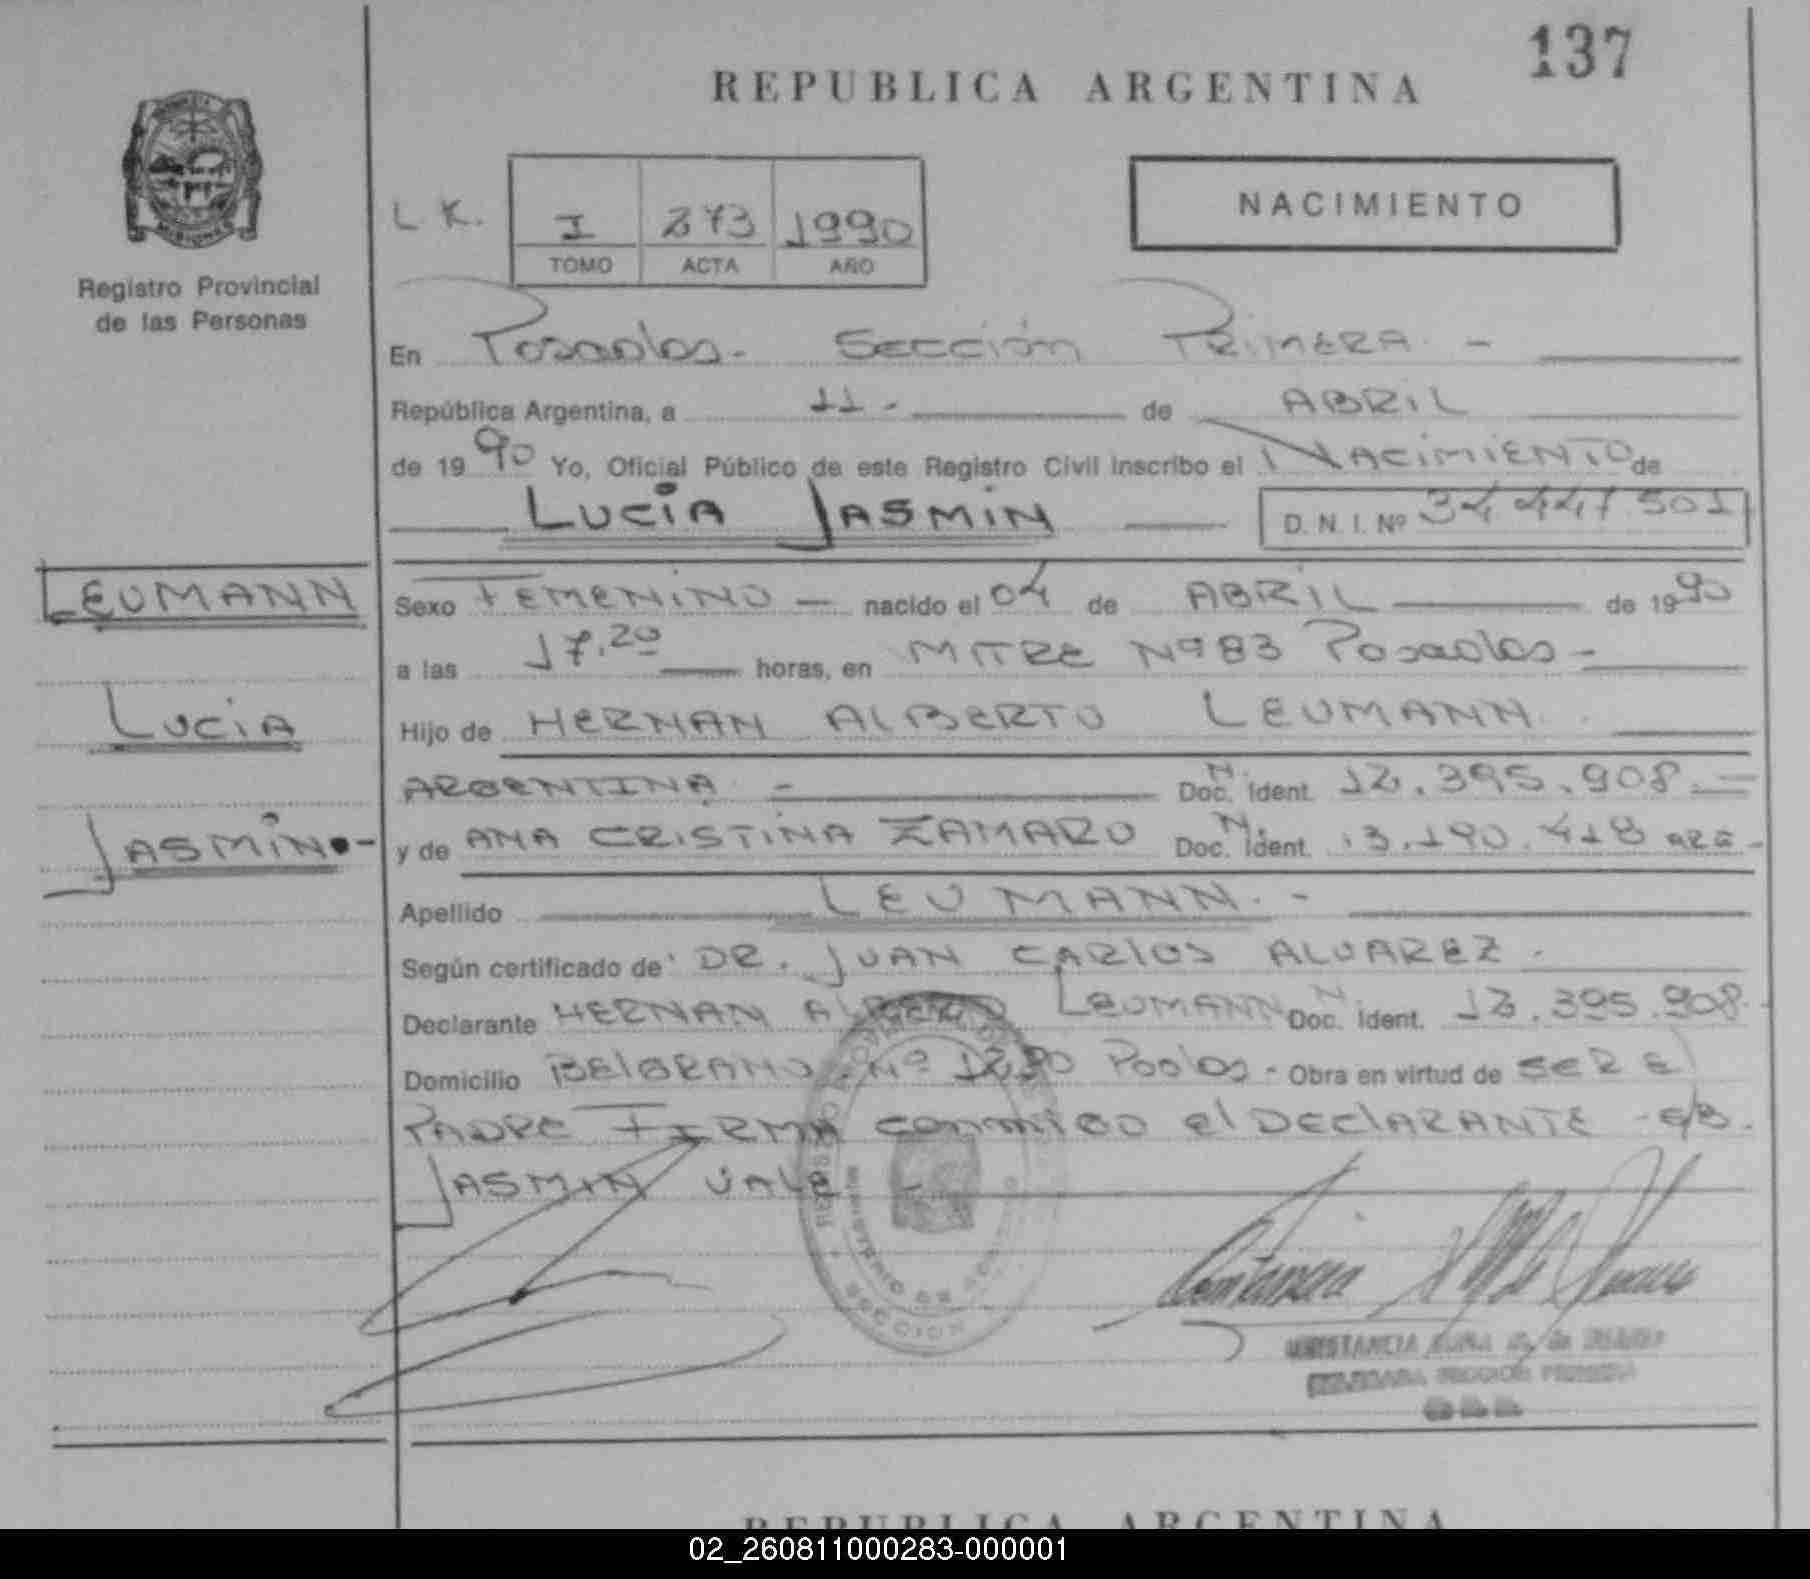 137
REPUBLICA ARGENTINA
MISIONES
Registro Provincial
de las Personas
L K.
I 273 1990
TOMO ACTA AÑO
NACIMIENTO
En Posadas- Sección Primera -
República Argentina, a 11- de ABRIL
de 1990 Yo, Oficial Público de este Registro Civil inscribo el NACIMIENTO de
LUCIA JASMIN D. N. I. Nº 34 447 501
LEUMANN
LUCIA
JASMIN.-
Sexo FEMENINO - nacido el 04 de ABRIL de 1990
a las 17.20 horas, en MITRE Nº 83 Posadas-
Hijo de HERNAN ALBERTO LEUMANN
ARGENTINA - Doc. N. Ident. 12.395.908.=
y de ANA CRISTINA ZAMARO Doc. N. Ident. 13.190.418 ARG-
Apellido LEUMANN.-
Según certificado de DR. JUAN CARLOS ALVAREZ.
Declarante HERNAN ALBERTO LEUMANN Doc. N Ident. 12.395.908.
Domicilio BELGRANO Nº 1290 Posdas- Obra en virtud de SER EL
PADRE FIRMA conmigo el DECLARANTE - S/B.
JASMIN VALE -
SECCION
DELEGADA SECCION PRIMERA
REPUBLICA ARGENTINA
02_260811000283-000001